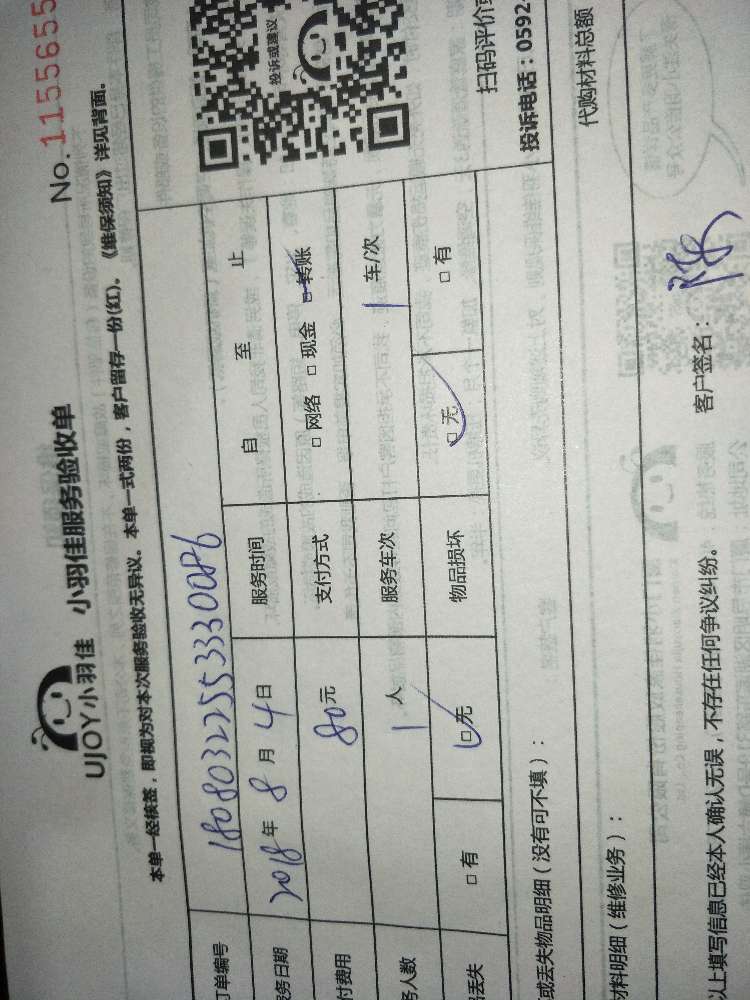 UJOY小羽佳 小羽佳服务验收单
No. 1155655
本单一经核签，即视为对本次服务验收无异议。本单一式两份，客户留存一份(红)、《维保须知》详见背面。
订单编号 18080322553330086
投诉或建议
服务日期 2018年8月4日 服务时间 自 至 止
付费用 80元 支付方式 □网络 □现金 □转账
务人数 1人 服务车次 1车/次
品丢失 □有 □无 物品损坏 □无 □有
扫码评价或
投诉电话：0592-
或丢失物品明细（没有可不填）：
代购材料总额
材料明细（维修业务）：
以上填写信息已经本人确认无误，不存在任何争议纠纷。 客户签名：